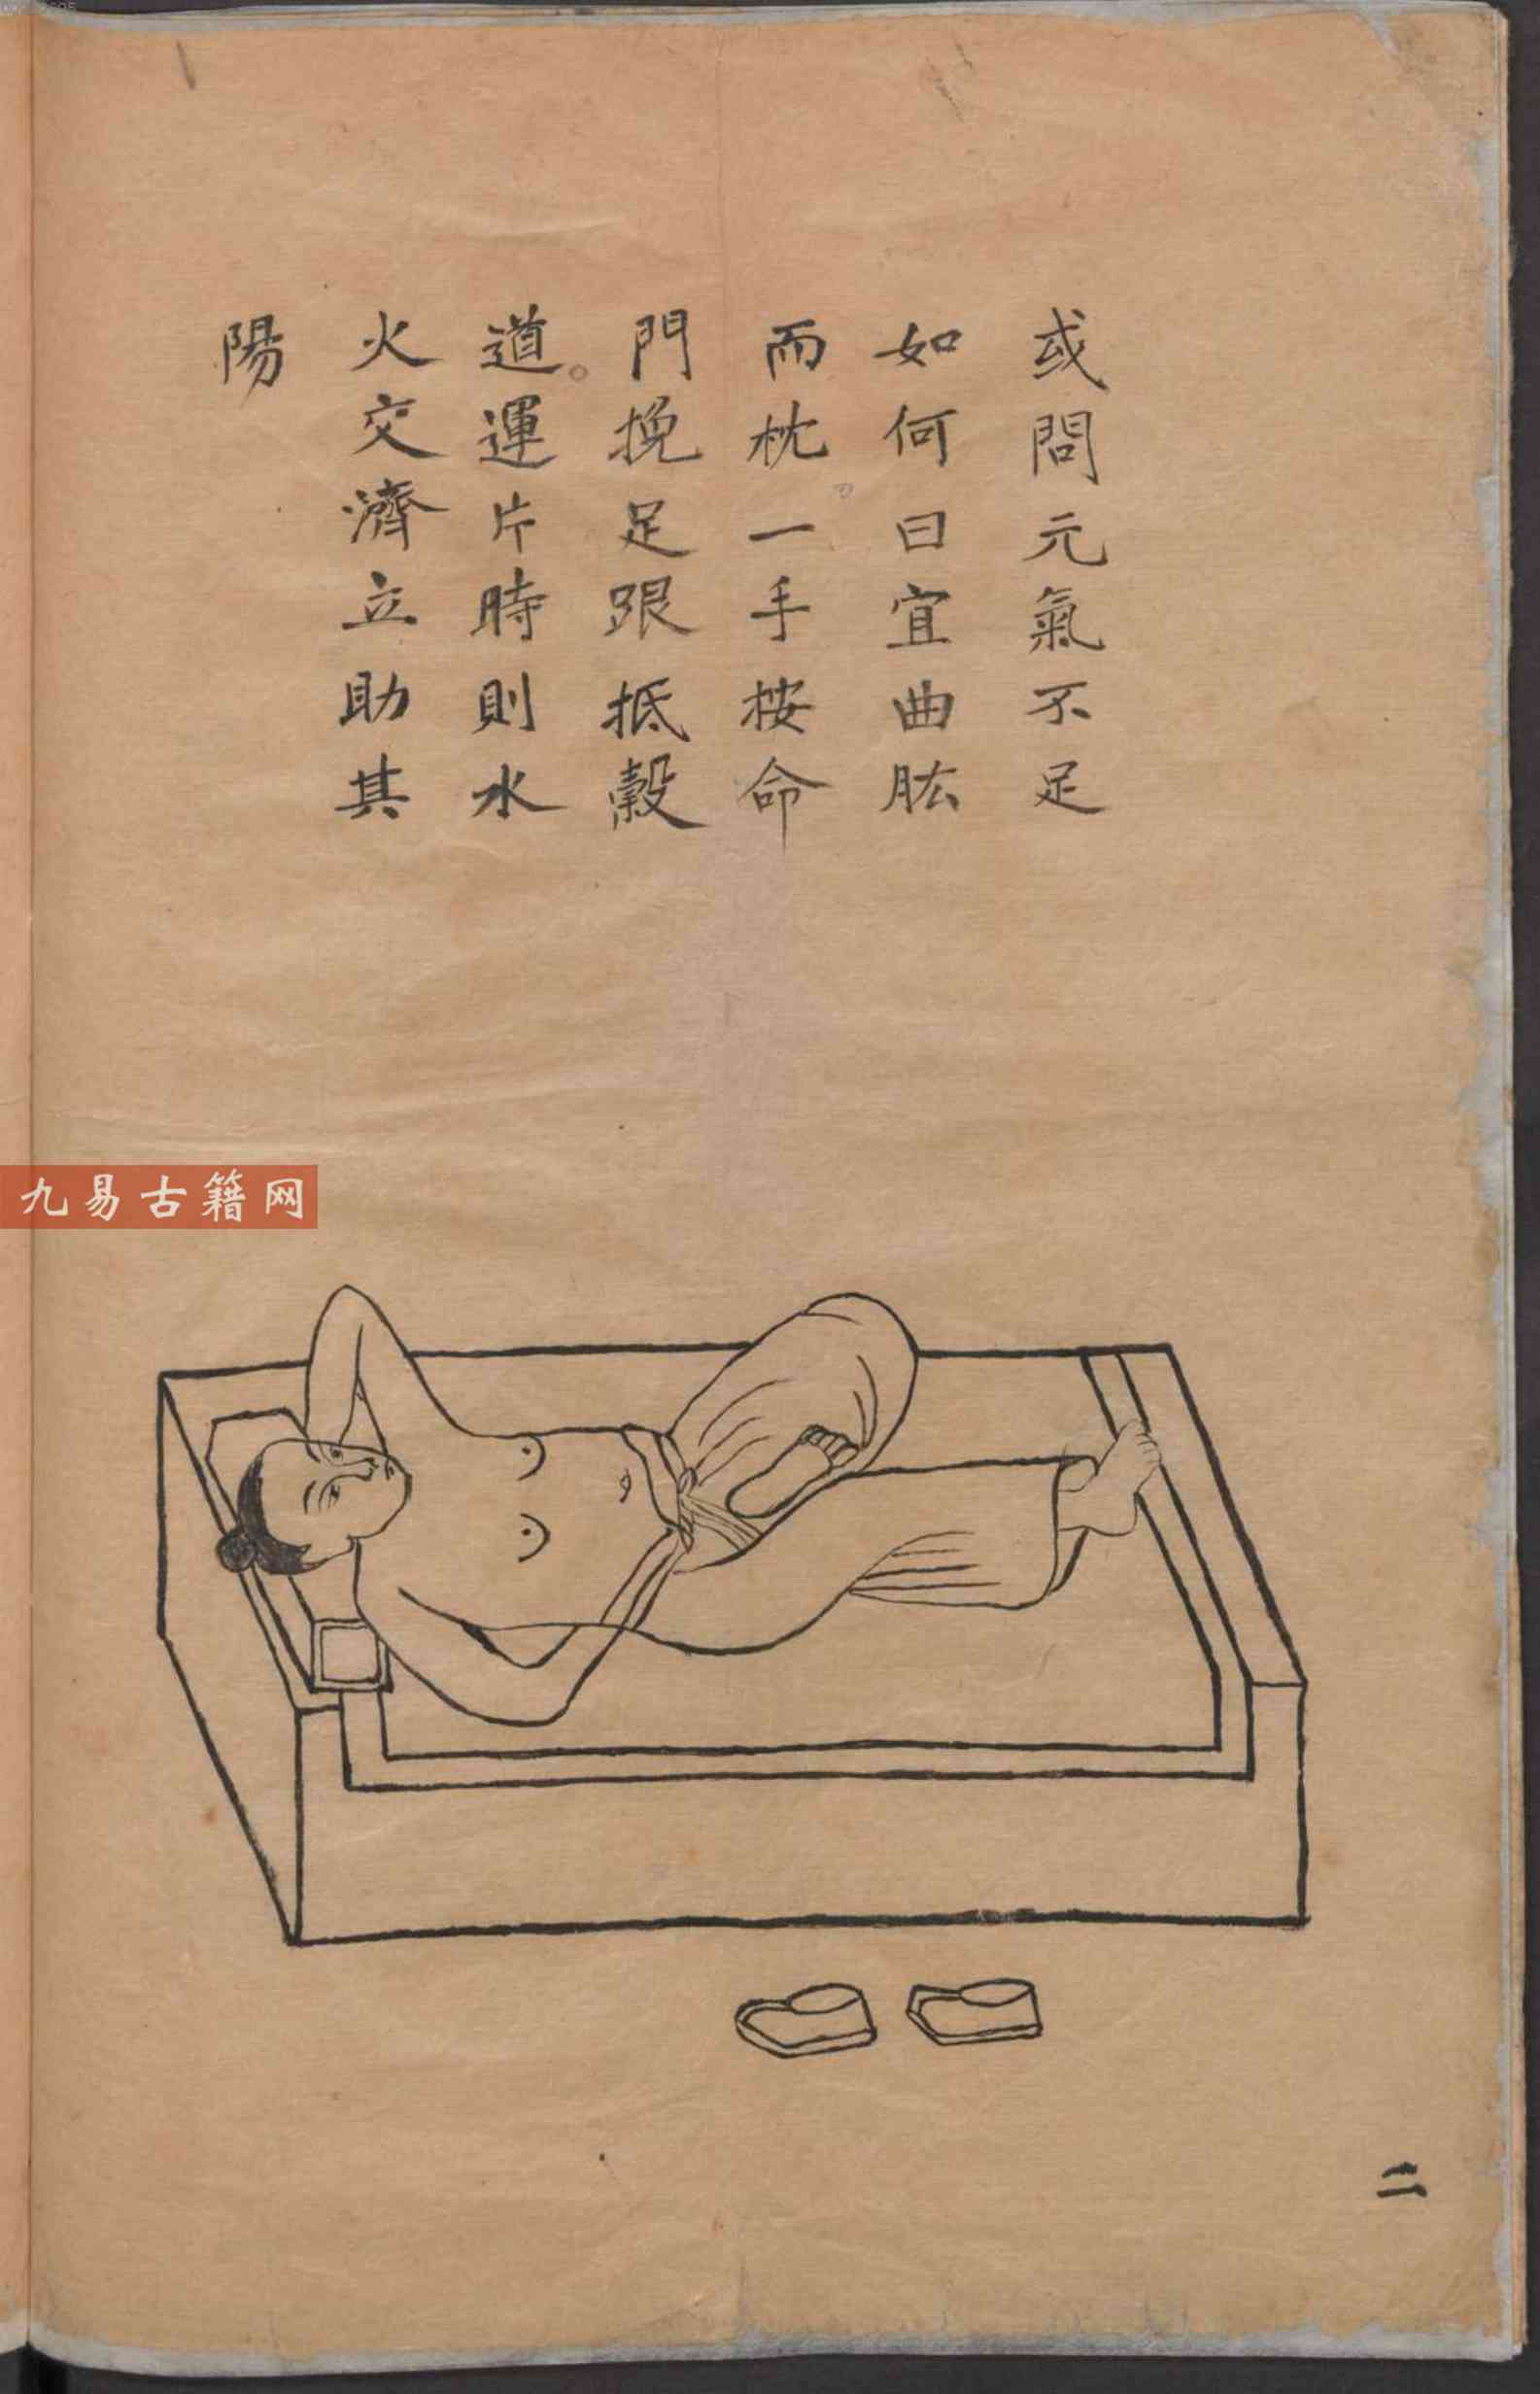 或問元氣不足
如何曰宜曲肱
而枕一手按命
門挽足跟抵縠
道。運片時則水
火交濟立助其
陽
九易古籍网
二